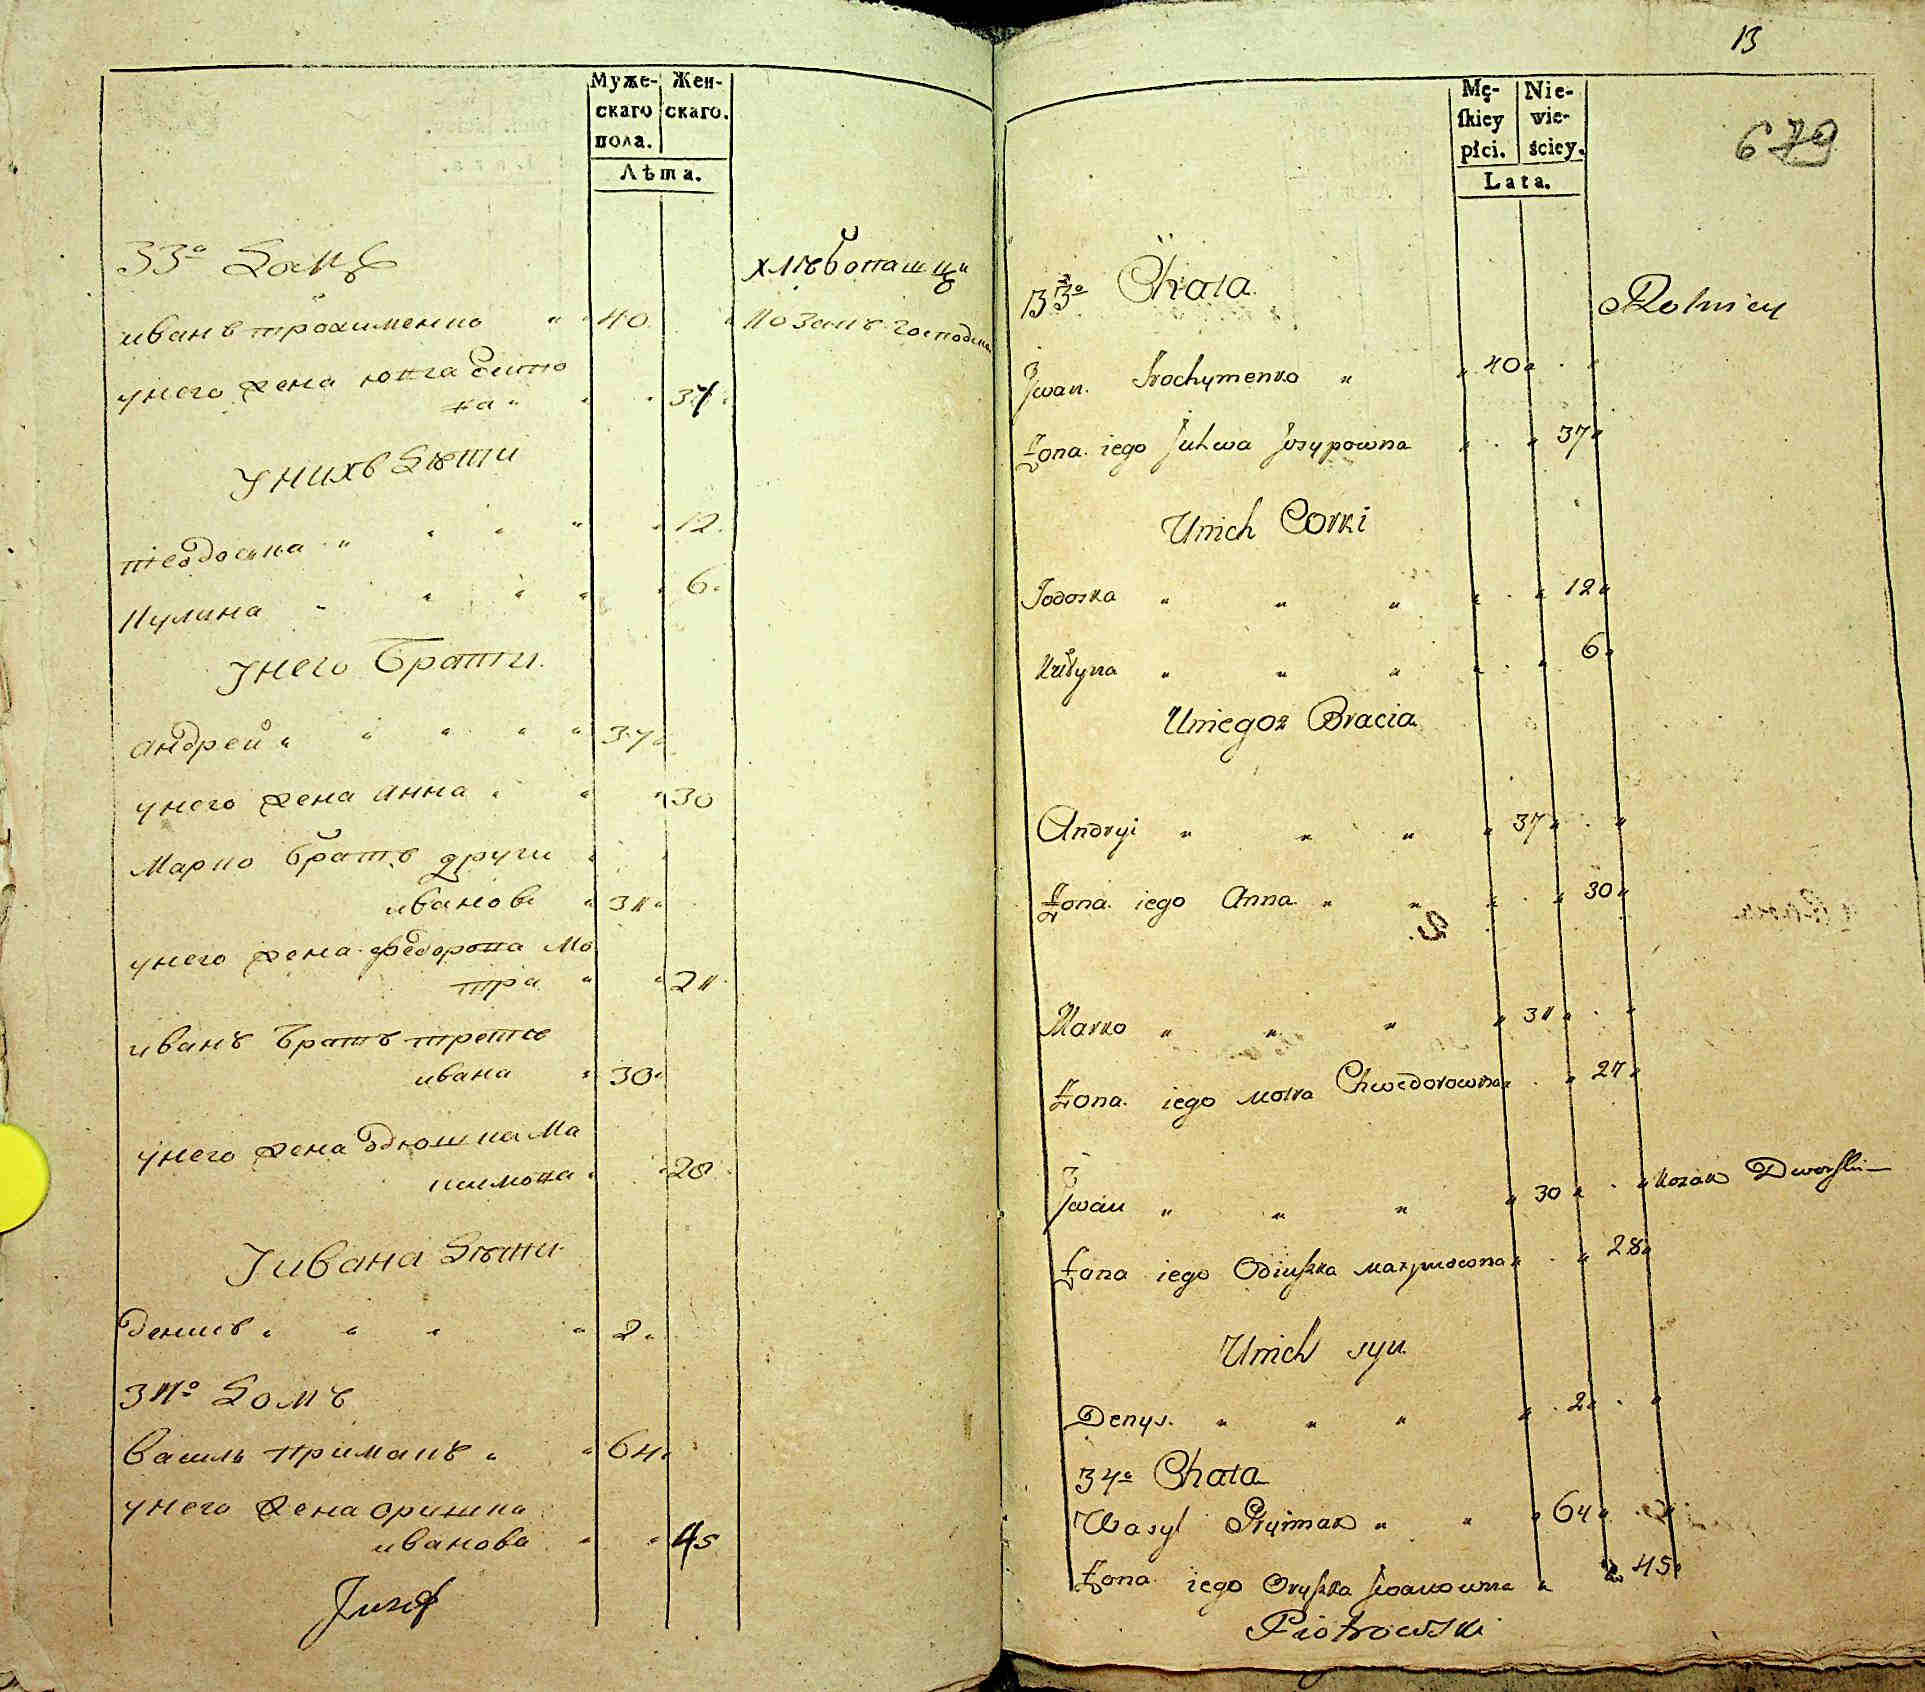 Муже-
скаго
пола.
Жен-
скаго.
Лѣта.
33º Домъ
хлѣбопашцы
иванъ трохименко " " 40 "
козакъ господ
унего жена юхга осипо
ка " " " 37 "
унихъ дѣти
теодоска " " " " " 12
Кулина " " " " " 6
унего брати
андрей " " " " " 37 "
унего жена анна " " " 30
Марко братъ други
ивановъ " 34 "
унего жена федорова Мо
тра " " 24
иванъ братъ трети
ивана " 30 "
унего жена одюшка Ма
ксимова " 28
уивана дѣти
денисъ " " " " 2 "
34º Домъ
василь приман " " 64 "
унего жена оришка
иванова " " 45
Juzef
13
679
Mę-
skiey
płci.
Nie-
wie-
ściey.
Lata.
33º Chata
Rolnicy
Jwan Trochymenko " " 40 "
Żona iego Juhwa Josypowna " " 37 "
Unich Corki
Todoska " " " " " 12 "
Kulyna " " " " " 6 "
Uniegoż Bracia
Andryi " " " " 37 "
Żona iego Anna " " " " 30 "
Marko " " " " 34 "
Żona iego Motra Chwedorowna " " 24 "
Jwan " " " " 30 " " Kozak Dworski
Żona iego Odiuszka Maxymowna " " 28 "
Unich syn
Denys " " " " 2 " "
34º Chata
Wasyl Pryimak " " " 64 "
Żona iego Oryszka Jwanowna " " 45 "
Piotrowski